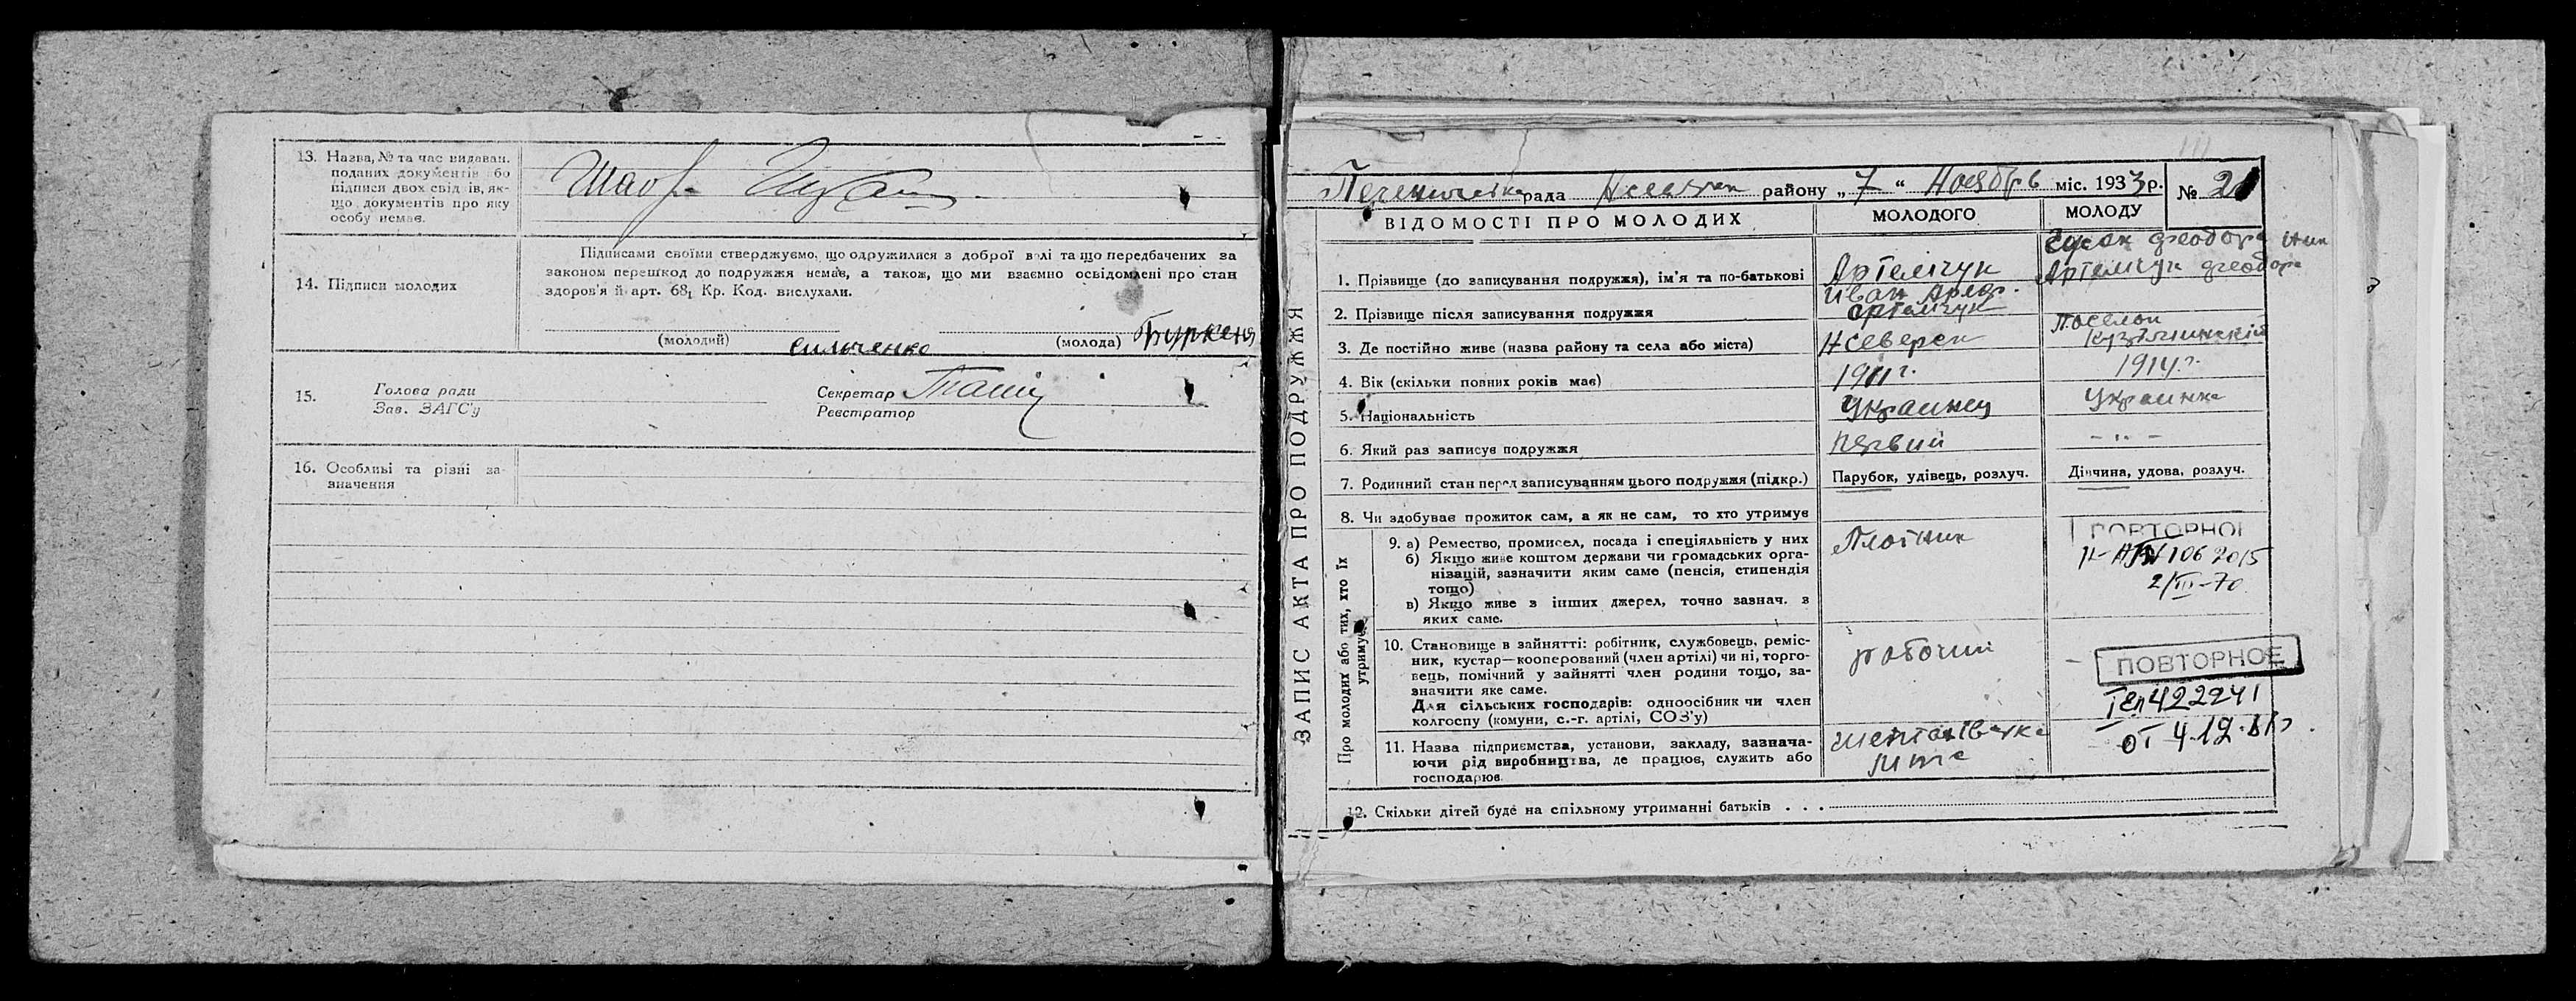 13. Назва, № та час видаван.
поданих документів або
підписи двох свідків, як-
що документів про яку
особу немає.
14. Підписи молодих
Підписами своїми стверджуємо, що одружилися з доброї волі та що передбачених за
законом перешкод до подружжя немає, а також, що ми взаємно освідомлені про стан
здоров'я й арт. 68₁ Кр. Код. вислухали.
(молодий) (молода)
сильченко
15. Голова ради
Зав. ЗАГС'у
Секретар
Реєстратор
16. Особливі та різні за-
значення
ЗАПИС АКТА ПРО ПОДРУЖЖЯ
рада району „7“ Ноябрь міс. 1933р. № 21
ВІДОМОСТІ ПРО МОЛОДИХ МОЛОДОГО МОЛОДУ
1. Прізвище (до записування подружжя), ім'я та по-батькові
Артемчук
Иван
2. Прізвище після записування подружжя
Артемчук
Артемчук
3. Де постійно живе (назва району та села або міста)
Нсеверск
Поселок
4. Вік (скільки повних років має) 1911 г. 1914 г.
5. Національність Украинец Украинка
6. Який раз записує подружжя первий - " -
7. Родинний стан перед записуванням цього подружжя (підкр.) Парубок, удівець, розлуч. Дівчина, удова, розлуч.
8. Чи здобуває прожиток сам, а як не сам, то хто утримує
Про молодих або тих, хто їх
утримує
9. а) Ремество, промисел, посада і спеціяльність у них
б) Якщо живе коштом держави чи громадських орга-
нізацій, зазначити яким саме (пенсія, стипендія
тощо)
в) Якщо живе з інших джерел, точно зазнач. з
яких саме.
Плотник
ПОВТОРНОЕ
106 2015
2/III-70
10. Становище в зайнятті: робітник, службовець, реміс-
ник, кустар—кооперований (член артілі) чи ні, торго-
вець, помічний у зайнятті член родини тощо, за-
значити яке саме.
Для сільських господарів: одноосібник чи член
колгоспу (комуни, с.-г. артілі, СОЗ'у)
рабочий
ПОВТОРНОЕ
422241
от 4.12.
11. Назва підприємства, установи, закладу, зазнача-
ючи рід виробництва, де працює, служить або
господарює
12. Скільки дітей буде на спільному утриманні батьків . . .